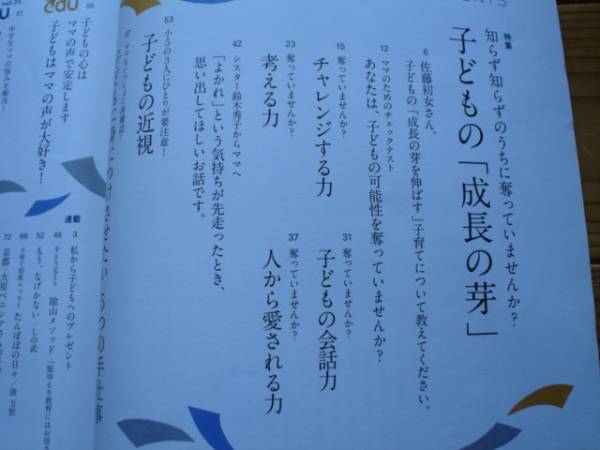 特集
知らず知らずのうちに奪っていませんか?
子どもの「成長の芽」
6 佐藤初女さん、
子どもの「成長の芽を伸ばす」子育てについて教えてください。
12 ママのためのチェックテスト
あなたは、子どもの可能性を奪っていませんか?
15 奪っていませんか?
チャレンジする力
31 奪っていませんか?
子どもの会話力
23 奪っていませんか?
考える力
37 奪っていませんか?
人から愛される力
42 シスター鈴木秀子からママへ
「よかれ」という気持ちが先走ったとき、
思い出してほしいお話です。
63 小5の3人にひとりが要注意!
子どもの近視
edu
55
子どもの心は
ママの声で安定します
子どもはママの声が大好き!
連載
3 私から子どもへのプレゼント
45 陰山メソッド
52
68 たんぽぽの日々/俵 万智
72 京都・大原
vol.25
67